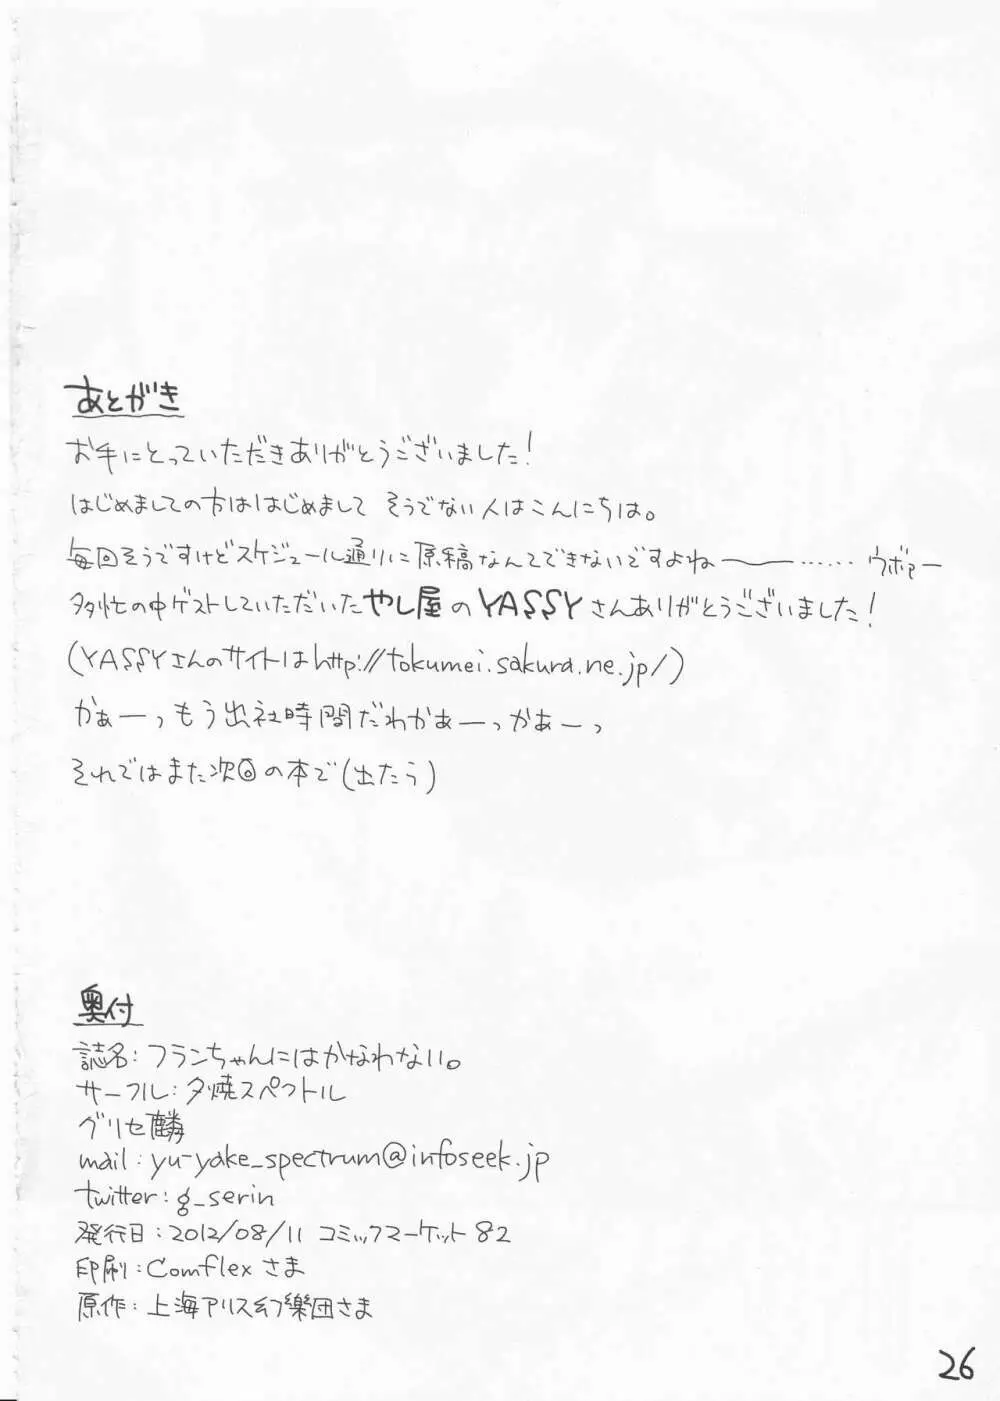 あとがき
お手にとっていただきありがとうございました!
はじめましての方ははじめまして そうでない人はこんにちは。
毎回そうですけどスケジュール通りに原稿なんてできないですよね〜……ウボァー
多忙の中ゲストしていただいたやし屋のYASSYさんありがとうございました!
(YASSYさんのサイトはhttp://tokumei.sakura.ne.jp/)
かぁーっもう出社時間だわかぁーっかぁーっ
それではまた次回の本で(出たら)
奥付
誌名:フランちゃんにはかなわない。
サークル:夕焼スペクトル
グリセ麟
mail:yu-yake_spectrum@infoseek.jp
twitter:g_serin
発行日:2012/08/11 コミックマーケット82
印刷:Comflexさま
原作:上海アリス幻樂団さま
26